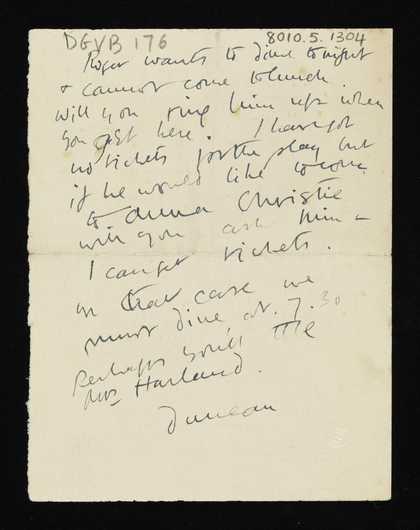 DGVB 176
8010.5.1304
Roger wants to dine tonight
& cannot come to lunch.
Will you ring him up when
you get here. I have got
no tickets for the play but
if he would like to come
to Anna Christie
will you ask him –
I can get tickets.
in that case we
must dine at 7.30
Perhaps you'll
Mrs Harland.
Duncan